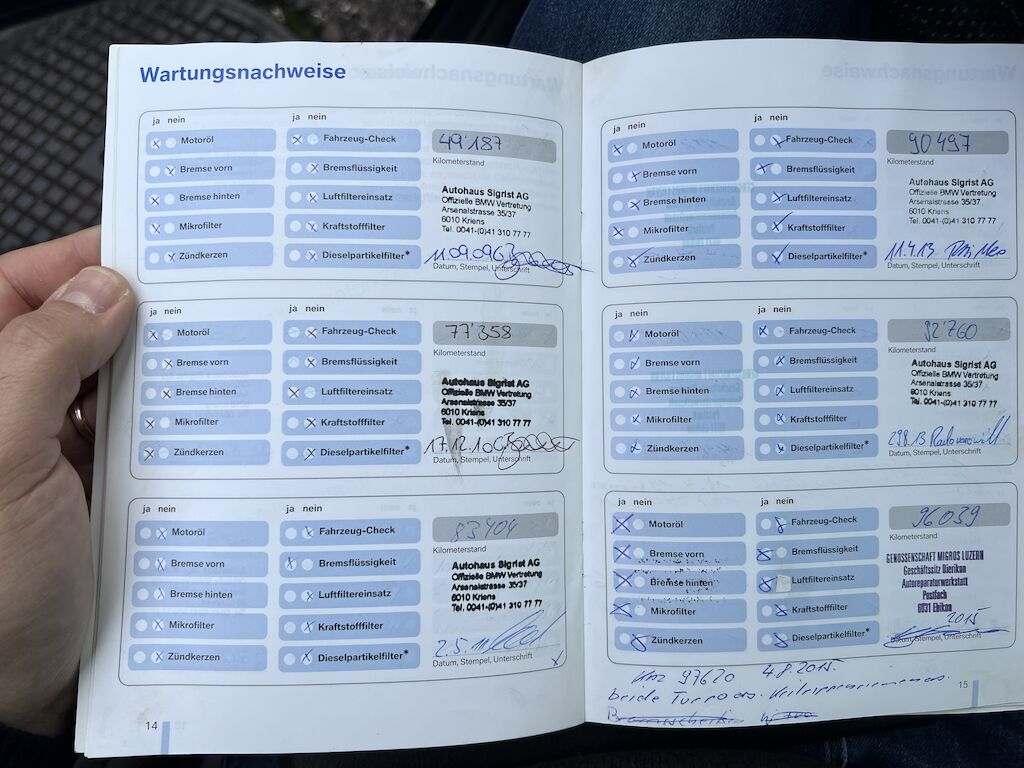 Wartungsnachweise
ja nein
Motoröl
Bremse vorn
Bremse hinten
Mikrofilter
Zündkerzen
ja nein
Fahrzeug-Check
Bremsflüssigkeit
Luftfiltereinsatz
Kraftstofffilter
Dieselpartikelfilter*
49'187
Kilometerstand
Autohaus Sigrist AG
Offizielle BMW Vertretung
Arsenalstrasse 35/37
6010 Kriens
Tel. 0041-(0)41 310 77 77
11.09.09
Datum, Stempel, Unterschrift
ja nein
Motoröl
Bremse vorn
Bremse hinten
Mikrofilter
Zündkerzen
ja nein
Fahrzeug-Check
Bremsflüssigkeit
Luftfiltereinsatz
Kraftstofffilter
Dieselpartikelfilter*
77'358
Kilometerstand
Autohaus Sigrist AG
Offizielle BMW Vertretung
Arsenalstrasse 35/37
6010 Kriens
Tel. 0041-(0)41 310 77 77
17.12.10
Datum, Stempel, Unterschrift
ja nein
Motoröl
Bremse vorn
Bremse hinten
Mikrofilter
Zündkerzen
ja nein
Fahrzeug-Check
Bremsflüssigkeit
Luftfiltereinsatz
Kraftstofffilter
Dieselpartikelfilter*
83404
Kilometerstand
Autohaus Sigrist AG
Offizielle BMW Vertretung
Arsenalstrasse 35/37
6010 Kriens
Tel. 0041-(0)41 310 77 77
2.5.11
Datum, Stempel, Unterschrift
14
ja nein
Motoröl
Bremse vorn
Bremse hinten
Mikrofilter
Zündkerzen
ja nein
Fahrzeug-Check
Bremsflüssigkeit
Luftfiltereinsatz
Kraftstofffilter
Dieselpartikelfilter*
90497
Kilometerstand
Autohaus Sigrist AG
Offizielle BMW Vertretung
Arsenalstrasse 35/37
6010 Kriens
Tel. 0041-(0)41 310 77 77
11.4.13
Datum, Stempel, Unterschrift
ja nein
Motoröl
Bremse vorn
Bremse hinten
Mikrofilter
Zündkerzen
ja nein
Fahrzeug-Check
Bremsflüssigkeit
Luftfiltereinsatz
Kraftstofffilter
Dieselpartikelfilter*
92760
Kilometerstand
Autohaus Sigrist AG
Offizielle BMW Vertretung
Arsenalstrasse 35/37
6010 Kriens
Tel. 0041-(0)41 310 77 77
Datum, Stempel, Unterschrift
ja nein
Motoröl
Bremse vorn
Bremse hinten
Mikrofilter
Zündkerzen
ja nein
Fahrzeug-Check
Bremsflüssigkeit
Luftfiltereinsatz
Kraftstofffilter
Dieselpartikelfilter*
96039
Kilometerstand
GENOSSENSCHAFT MIGROS LUZERN
Geschäftssitz Dierikon
Autoreparaturwerkstatt
Postfach
6031 Ebikon
2015
Datum, Stempel, Unterschrift
97620 4.8.2015
beide
15